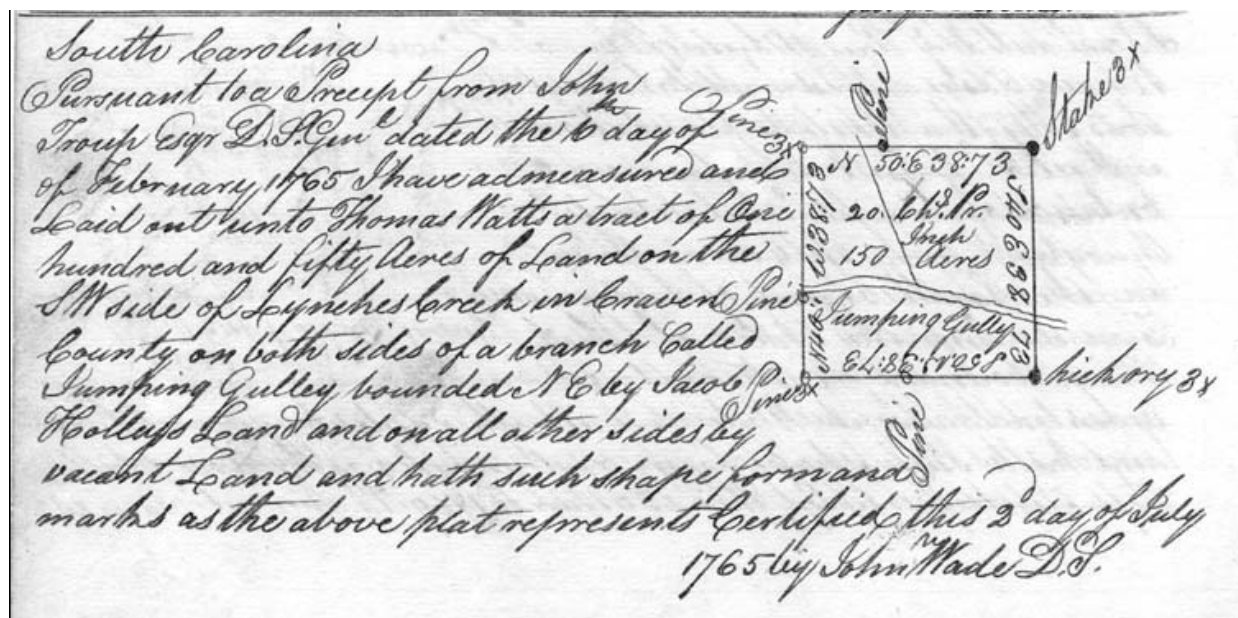 South Carolina
Pursuant to a Precept from John
Troup Esqr D. S. Genl dated the 6th day of
of February 1765 I have admeasured and
Laid out unto Thomas Watts a tract of One
hundred and fifty Acres of Land on the
SW side of Lynches Creek in Craven
County on both sides of a branch Called
Jumping Gulley bounded N E by Jacob
Holleys Land and on all other sides by
vacant Land and hath such shape form and
marks as the above plat represents Certified this 2d day of July
1765 by John Wade D. S.
Pine 3x
Pine
Stake 3x
N 50: E 38:73
20. Chs. Pr.
Inch
150 Acres
S40 E 38 73
N40: W 38:73
Pine
Jumping Gully
S 50 W: 38:73
Pine 3x
hickory 3x
Pine